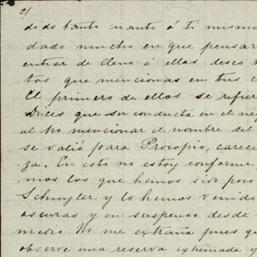 2/
dido tanto cuanto á ti mismo
dado mucho en que pensar
entrar de lleno á ellas deseo
tos que mencionas en tus
El primero de ellos se refier
Dices que su conducta en el ne
al no mencionar el nombre del
se valió para Procopio, carece
ga. En esto no estoy conforme
mos los que hemos sido
Schuyler y lo hemos venido
oscuras y en suspenso desde
medio No me extraña pues qu
observe una reserva extremada y